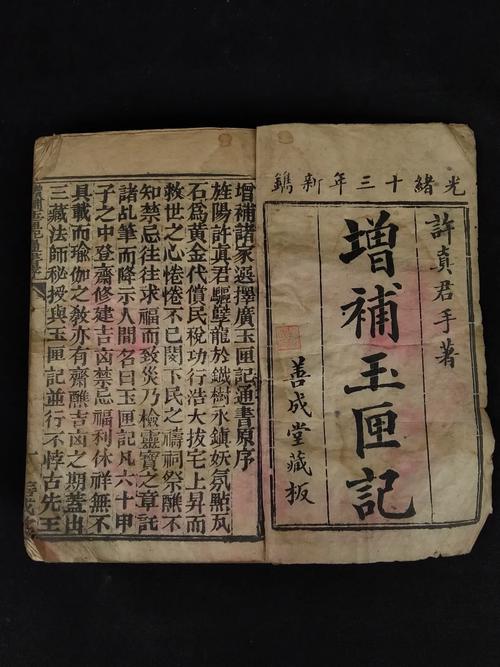 光緒十三年新鐫
許真君手著
增補玉匣記
善成堂藏板
增補諸家選擇廣玉匣記通書原序
旌陽許真君驅孽龍於鐵樹永鎮妖氛點瓦
石爲黃金代償民稅功行浩大拔宅上昇而
救世之心惓惓不已閔下民之禱祠祭醮不
知禁忌往往求福而致災乃檢靈寶之章託
諸乩筆而降示人間名曰玉匣記凡六十甲
子之中登齋修建吉凶禁忌福利休祥無不
具載而瑜伽之教亦有齋醮吉凶之期蓋出
三藏法師秘授與玉匣記並行不悖古先王